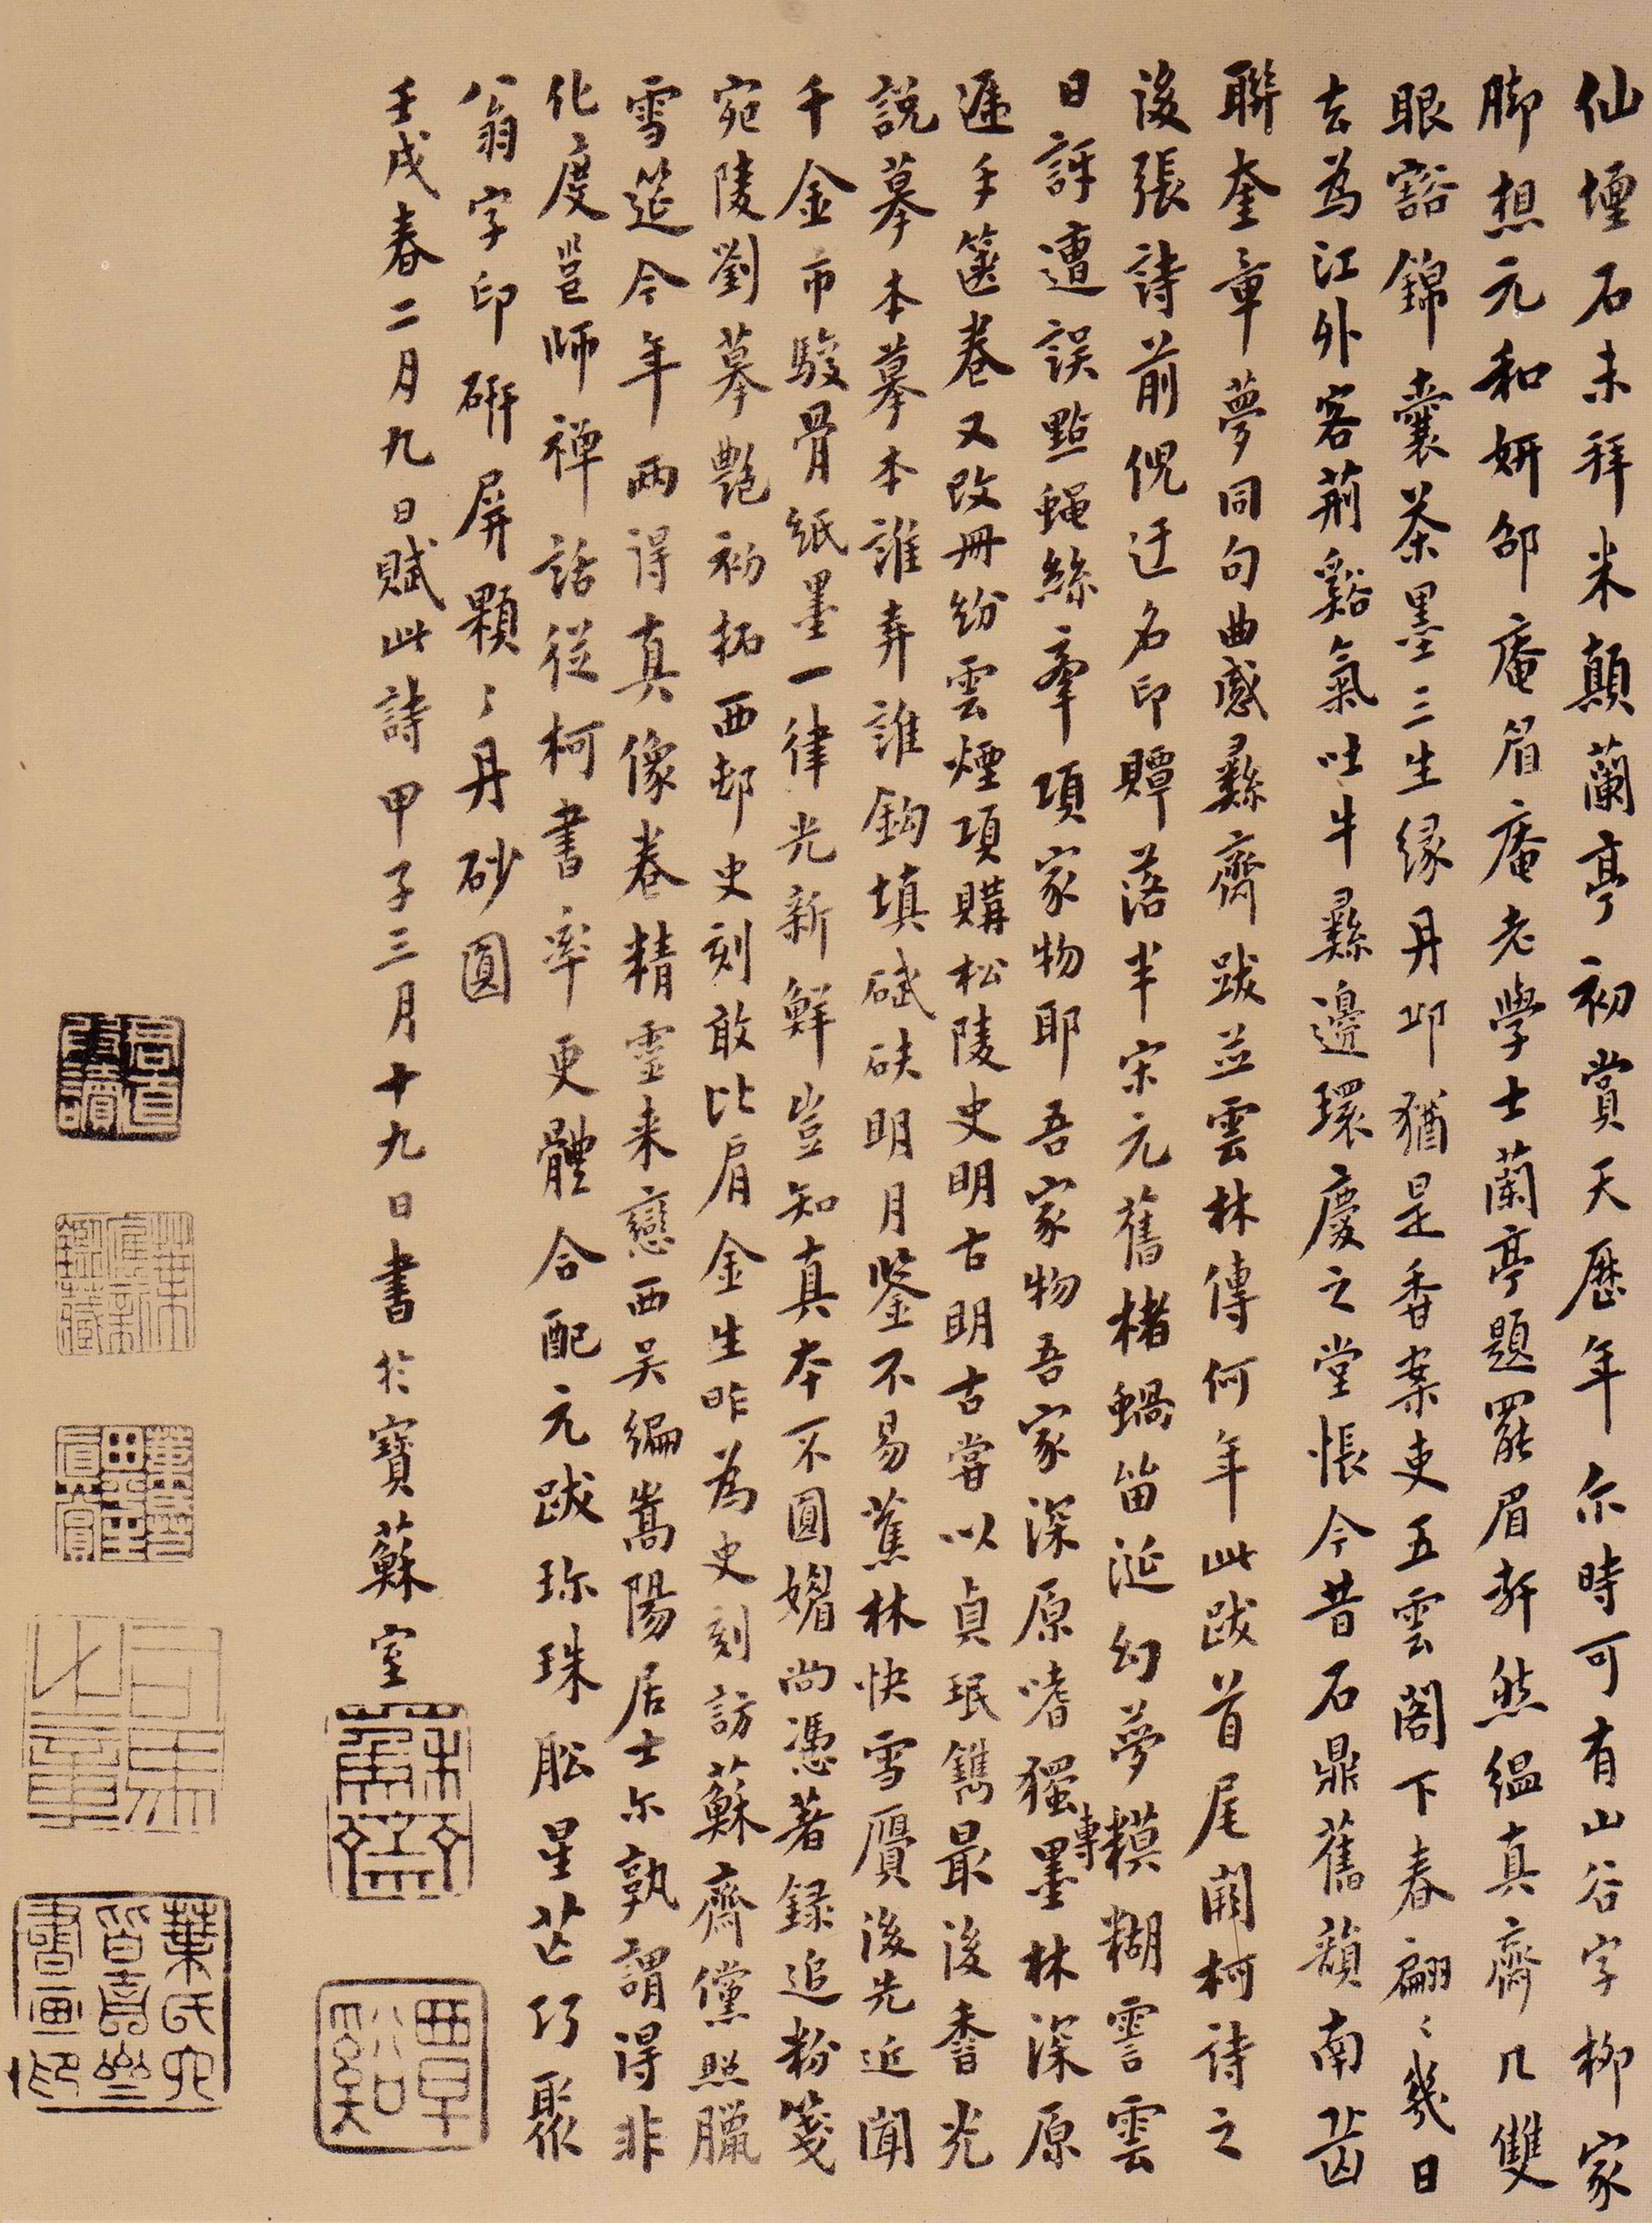 仙壇石未拜米顛蘭亭初賞天歷年尓時可有山谷字柳家
脚想元和妍邵庵眉庵老學士蘭亭題罷眉軒然緼真齋几雙
眼豁錦囊茶墨三生緣丹邱猶是香案吏五雲閣下春翩〻幾日
去為江外客荊谿氣吐牛彝邊環慶之堂悵今昔石鼎舊韻南齒
聯奎章夢同句曲感彝齋跋並雲林傳何年此跋首尾闕柯詩之
後張詩前倪迂名印贉落半宋元舊楮蝸留涎幻夢轉糢糊雲雲
日訝遭誤點蠅絲牽項家物耶吾家物吾家深原嗜獨墨林深原
遞手篋卷又改冊紛雲煙項購松陵史明古明古嘗以貞珉鐫最後香光
說摹本摹本誰弆誰鈎填碔砆明月鑒不易蕉林快雪贗後先近聞
千金市駿骨紙墨一律光新鮮豈知真本不圓媚尚憑著錄追粉箋
宛陵劉摹艷初拓西邨史刻敢比肩金生昨為史刻訪蘇齋儻照臘
雪筵今年兩得真像卷精靈来戀西吴編嵩陽居士尓孰謂得非
化度邕師禪話從柯書率更體合配元跋珎珠船星芒巧聚
翁字印硏屏顆〻丹砂圓
壬戌春二月九日賦此詩甲子三月十九日書於寶蘇室
蘇齋
覃谿
葉氏
書畫印